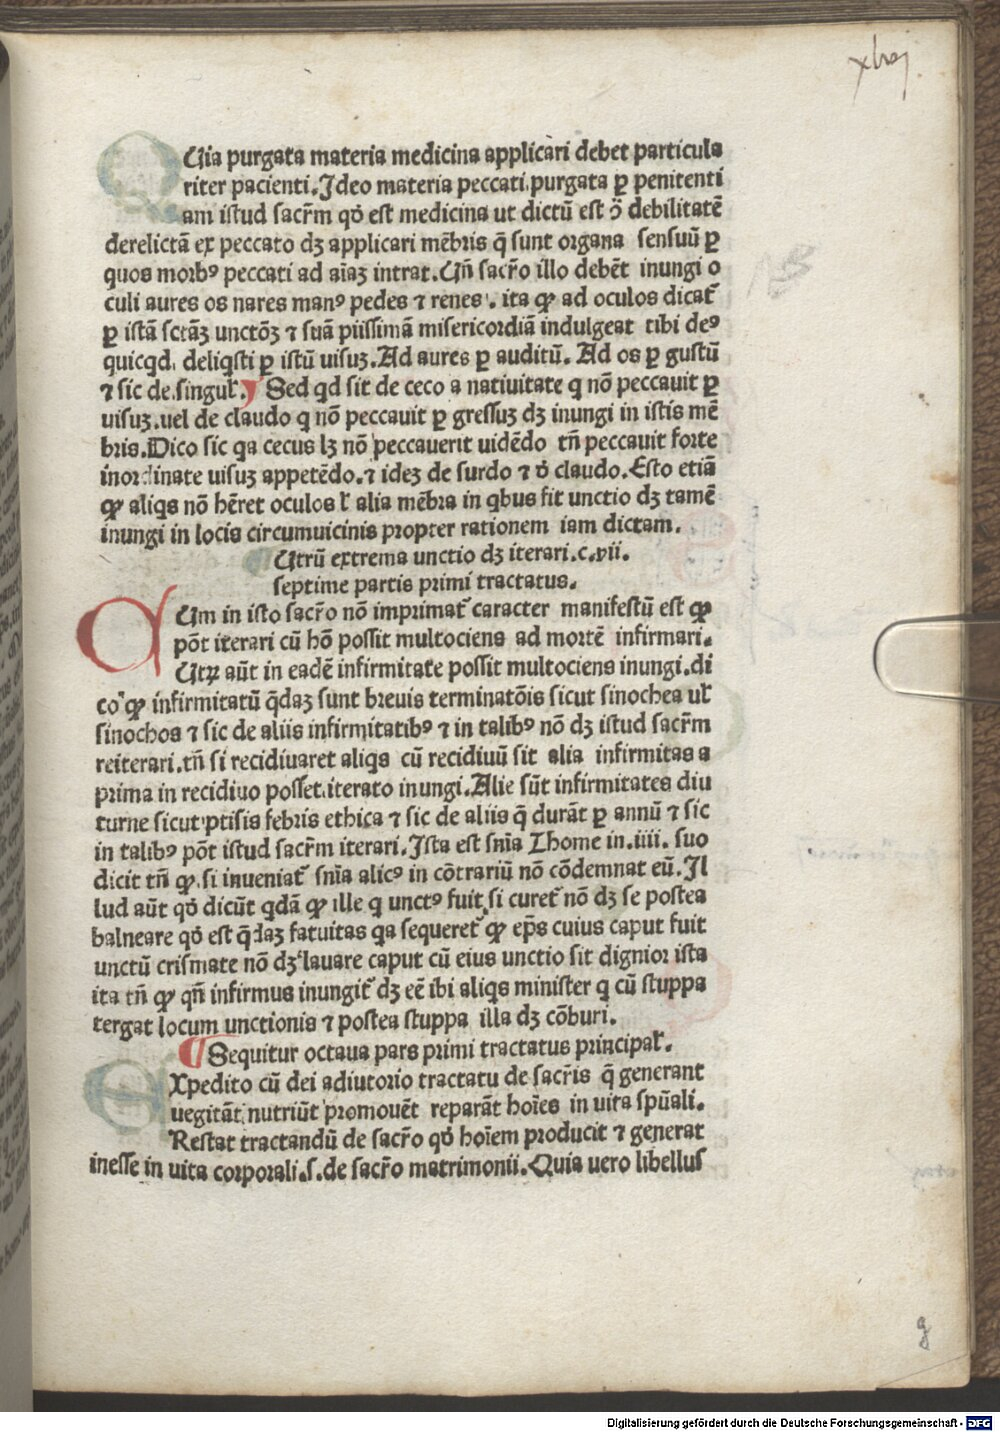 xlvej
QUia purgata materia medicina applicari debet particula
riter pacienti. Ideo materia peccati purgata ꝑ penitenti
am istud sacr̄m qđ est medicina ut dictū est ↄ̄ debilitatē
derelictā ex peccato dꝫ applicari mēbris q̄ sunt organa sensuū ꝑ
quos morbꝰ peccati ad aīaꝫ intrat. Uñ sacr̄o illo debēt inungi o
culi aures os nares manꝰ pedes ⁊ renes. ita ꝙ ad oculos dicat᷑
ꝑ istā sctāꝫ unctōꝫ ⁊ suā piissimā misericordiā indulgeat tibi deꝰ
quicqd deliqsti ꝑ istū uisuꝫ. Ad aures ꝑ auditū. Ad os ꝑ gustū
⁊ sic de singul᷑. Sed qd sit de ceco a natiuitate q nō peccauit ꝑ
uisuꝫ. uel de claudo q nō peccauit ꝑ gressuꝫ dꝫ inungi in istis mē
bris. Dico sic qa cecus lꝫ nō peccauerit uidēdo tñ peccauit forte
inordinate uisuꝫ appetēdo. ⁊ ideꝫ de surdo ⁊ đ claudo. Esto etiā
ꝙ aliqs nō hēret oculos l᷑ alia mēbra in qbus fit unctio dꝫ tamē
inungi in locis circumuicinis propter rationem iam dictam.
Utrū extrema unctio dꝫ iterari. c. vii.
septime partis primi tractatus.
CUm in isto sacr̄o nō imprimat᷑ caracter manifestū est ꝙ
pōt iterari cū hō possit multociens ad mortē infirmari.
Utꝝ aūt in eadē infirmitate possit multociens inungi. di
co ꝙ infirmitatū q̄daꝫ sunt breuis terminatōis sicut sinochea ul᷑
sinochos ⁊ sic de aliis infirmitatibꝰ ⁊ in talibꝰ nō dꝫ istud sacr̄m
reiterari. tñ si recidiuaret aliqs cū recidiuū sit alia infirmitas a
prima in recidiuo posset iterato inungi. Alie sūt infirmitates diu
turne sicut ptisis febris ethica ⁊ sic de aliis q̄ durāt ꝑ annū ⁊ sic
in talibꝰ pōt istud sacr̄m iterari. Ista est snīa Thome in. iiii. suo
dicit tñ ꝙ. si inueniat᷑ snīa alicꝰ in cōtrariū nō cōdemnat eū. Il
lud aūt qđ dicūt qdā ꝙ ille q unctꝰ fuit si curet᷑ nō dꝫ se postea
balneare qđ est q̄daꝫ fatuitas qa sequeret᷑ ꝙ ep̄s cuius caput fuit
unctū crismate nō dꝫ lauare caput cū eius unctio sit dignior ista
ita tñ ꝙ qñ infirmus inungit᷑ dꝫ eē ibi aliqs minister q cū stuppa
tergat locum unctionis ⁊ postea stuppa illa dꝫ cōburi.
Sequitur octaua pars primi tractatus principal᷑.
EXpedito cū dei adiutorio tractatu de sacr̄is q̄ generant
uegitāt nutriūt promouēt reparāt hoīes in uita spūali.
Restat tractandū de sacr̄o qđ hoīem producit ⁊ generat
inesse in uita corporali. s. de sacr̄o matrimonii. Quia uero libellus
g
Digitalisierung gefördert durch die Deutsche Forschungsgemeinschaft - DFG